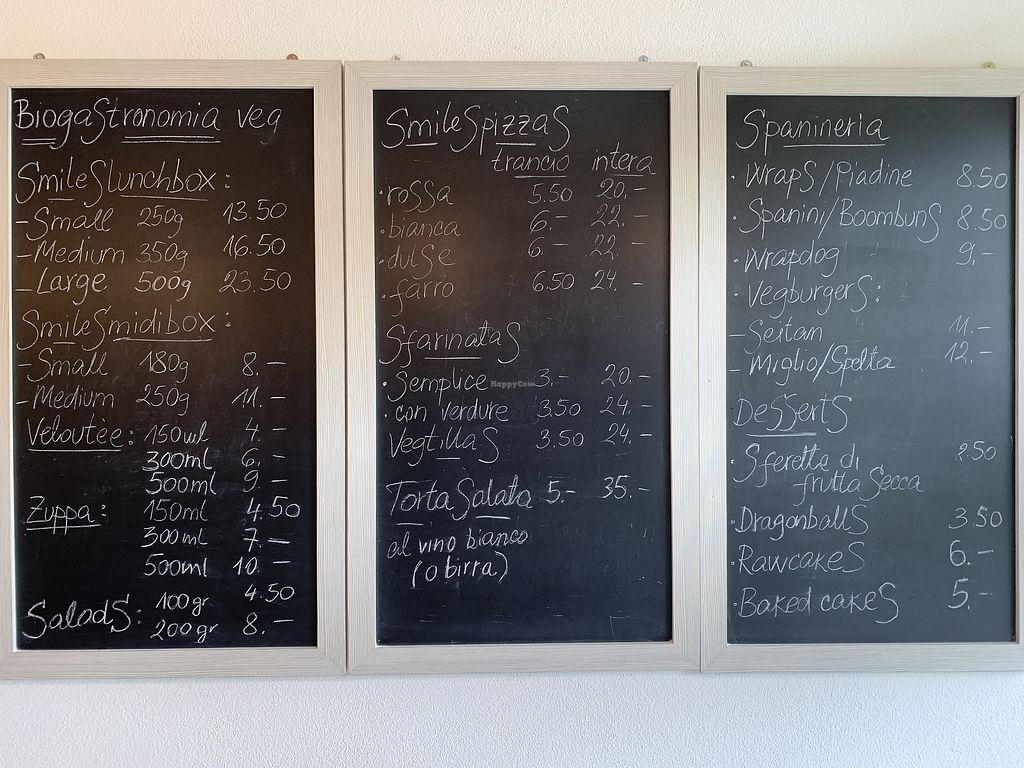 BiogaStronomia veg
SmileSlunchbox:
- Small 250g 13.50
- Medium 350g 16.50
- Large 500g 23.50
SmileSmidibox:
- Small 180g 8.-
- Medium 250g 11.-
Veloutèe: 150ml 4.-
300ml 6.-
500ml 9-
Zuppa: 150ml 4.50
300ml 7.-
500ml 10.-
SaladS: 100gr 4.50
200gr 8.-
SmileSpizzaS
trancio intera
·rossa 5.50 20.-
·bianca 6.- 22.-
·dulSe 6.- 22.-
·farro 6.50 24.-
SfarinataS
·Semplice 3.- 20.-
·con verdure 3.50 24.-
VegtillaS 3.50 24.-
Torta Salata 5.- 35.-
al vino bianco
(o birra)
Spanineria
·WrapS/Piadine 8.50
·Spanini/BoombunS 8.50
·Wrapdog 9.-
·VegburgerS:
- Seitan 11.-
- Miglio/Spelta 12.-
DeSSertS
·Sferette di 2.50
frutta Secca
·DragonballS 3.50
·RawcakeS 6.-
·Baked cakeS 5.-
HappyCow